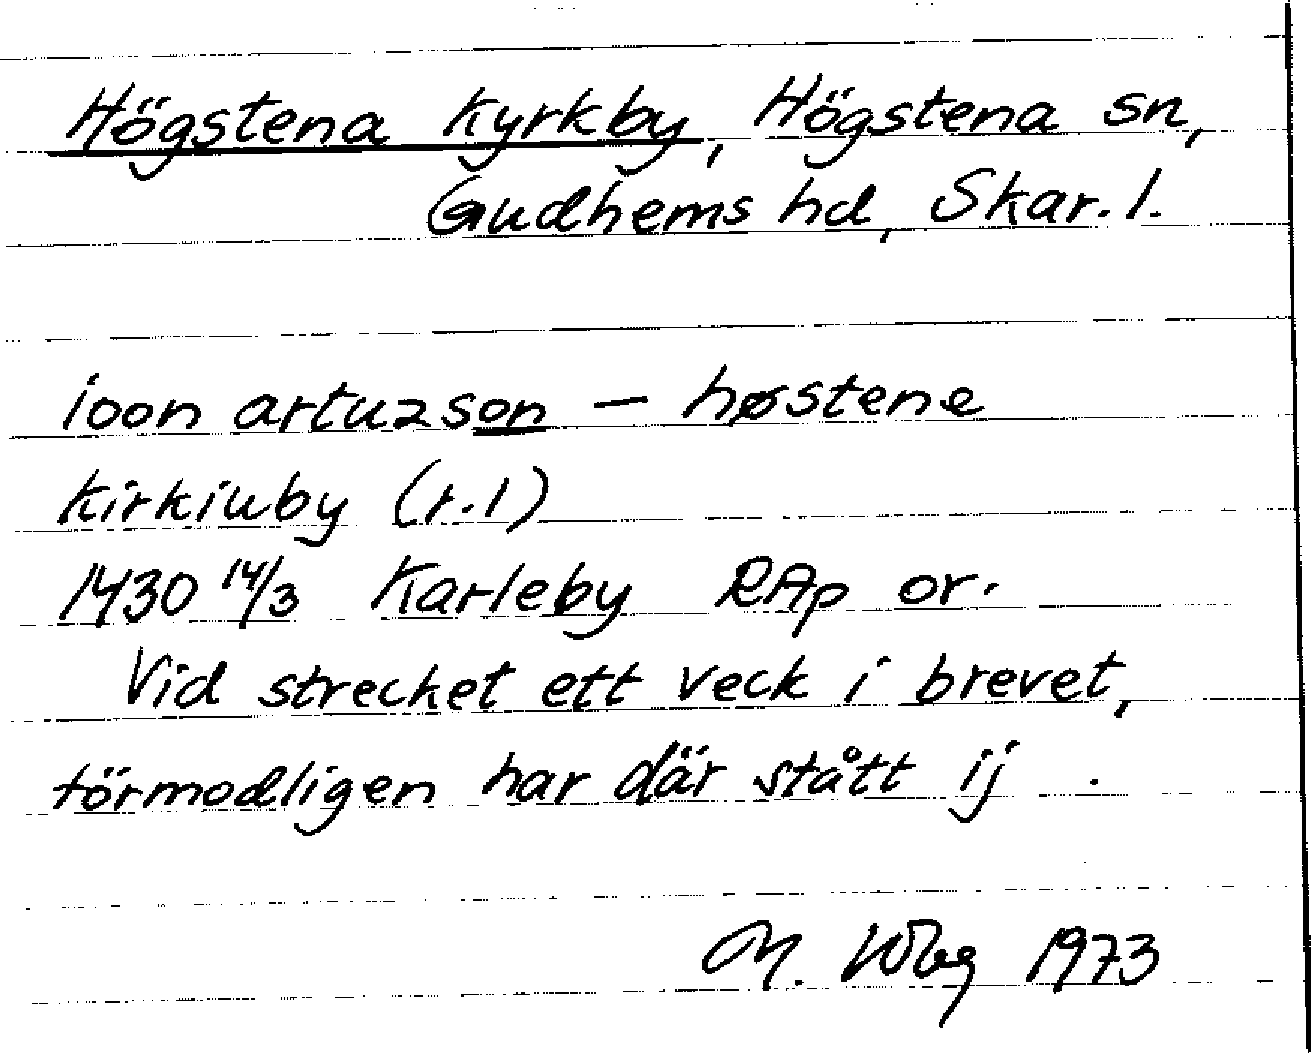 Högstena Kyrkby, Högstena sn,
Gudhems hd, Skar. l.
ioon artuzson — høstene
kirkiuby (r.1)
1430 14/3 Karleby RAp or.
Vid strecket ett veck i brevet,
förmodligen har där stått ij .
M. Wbg 1973